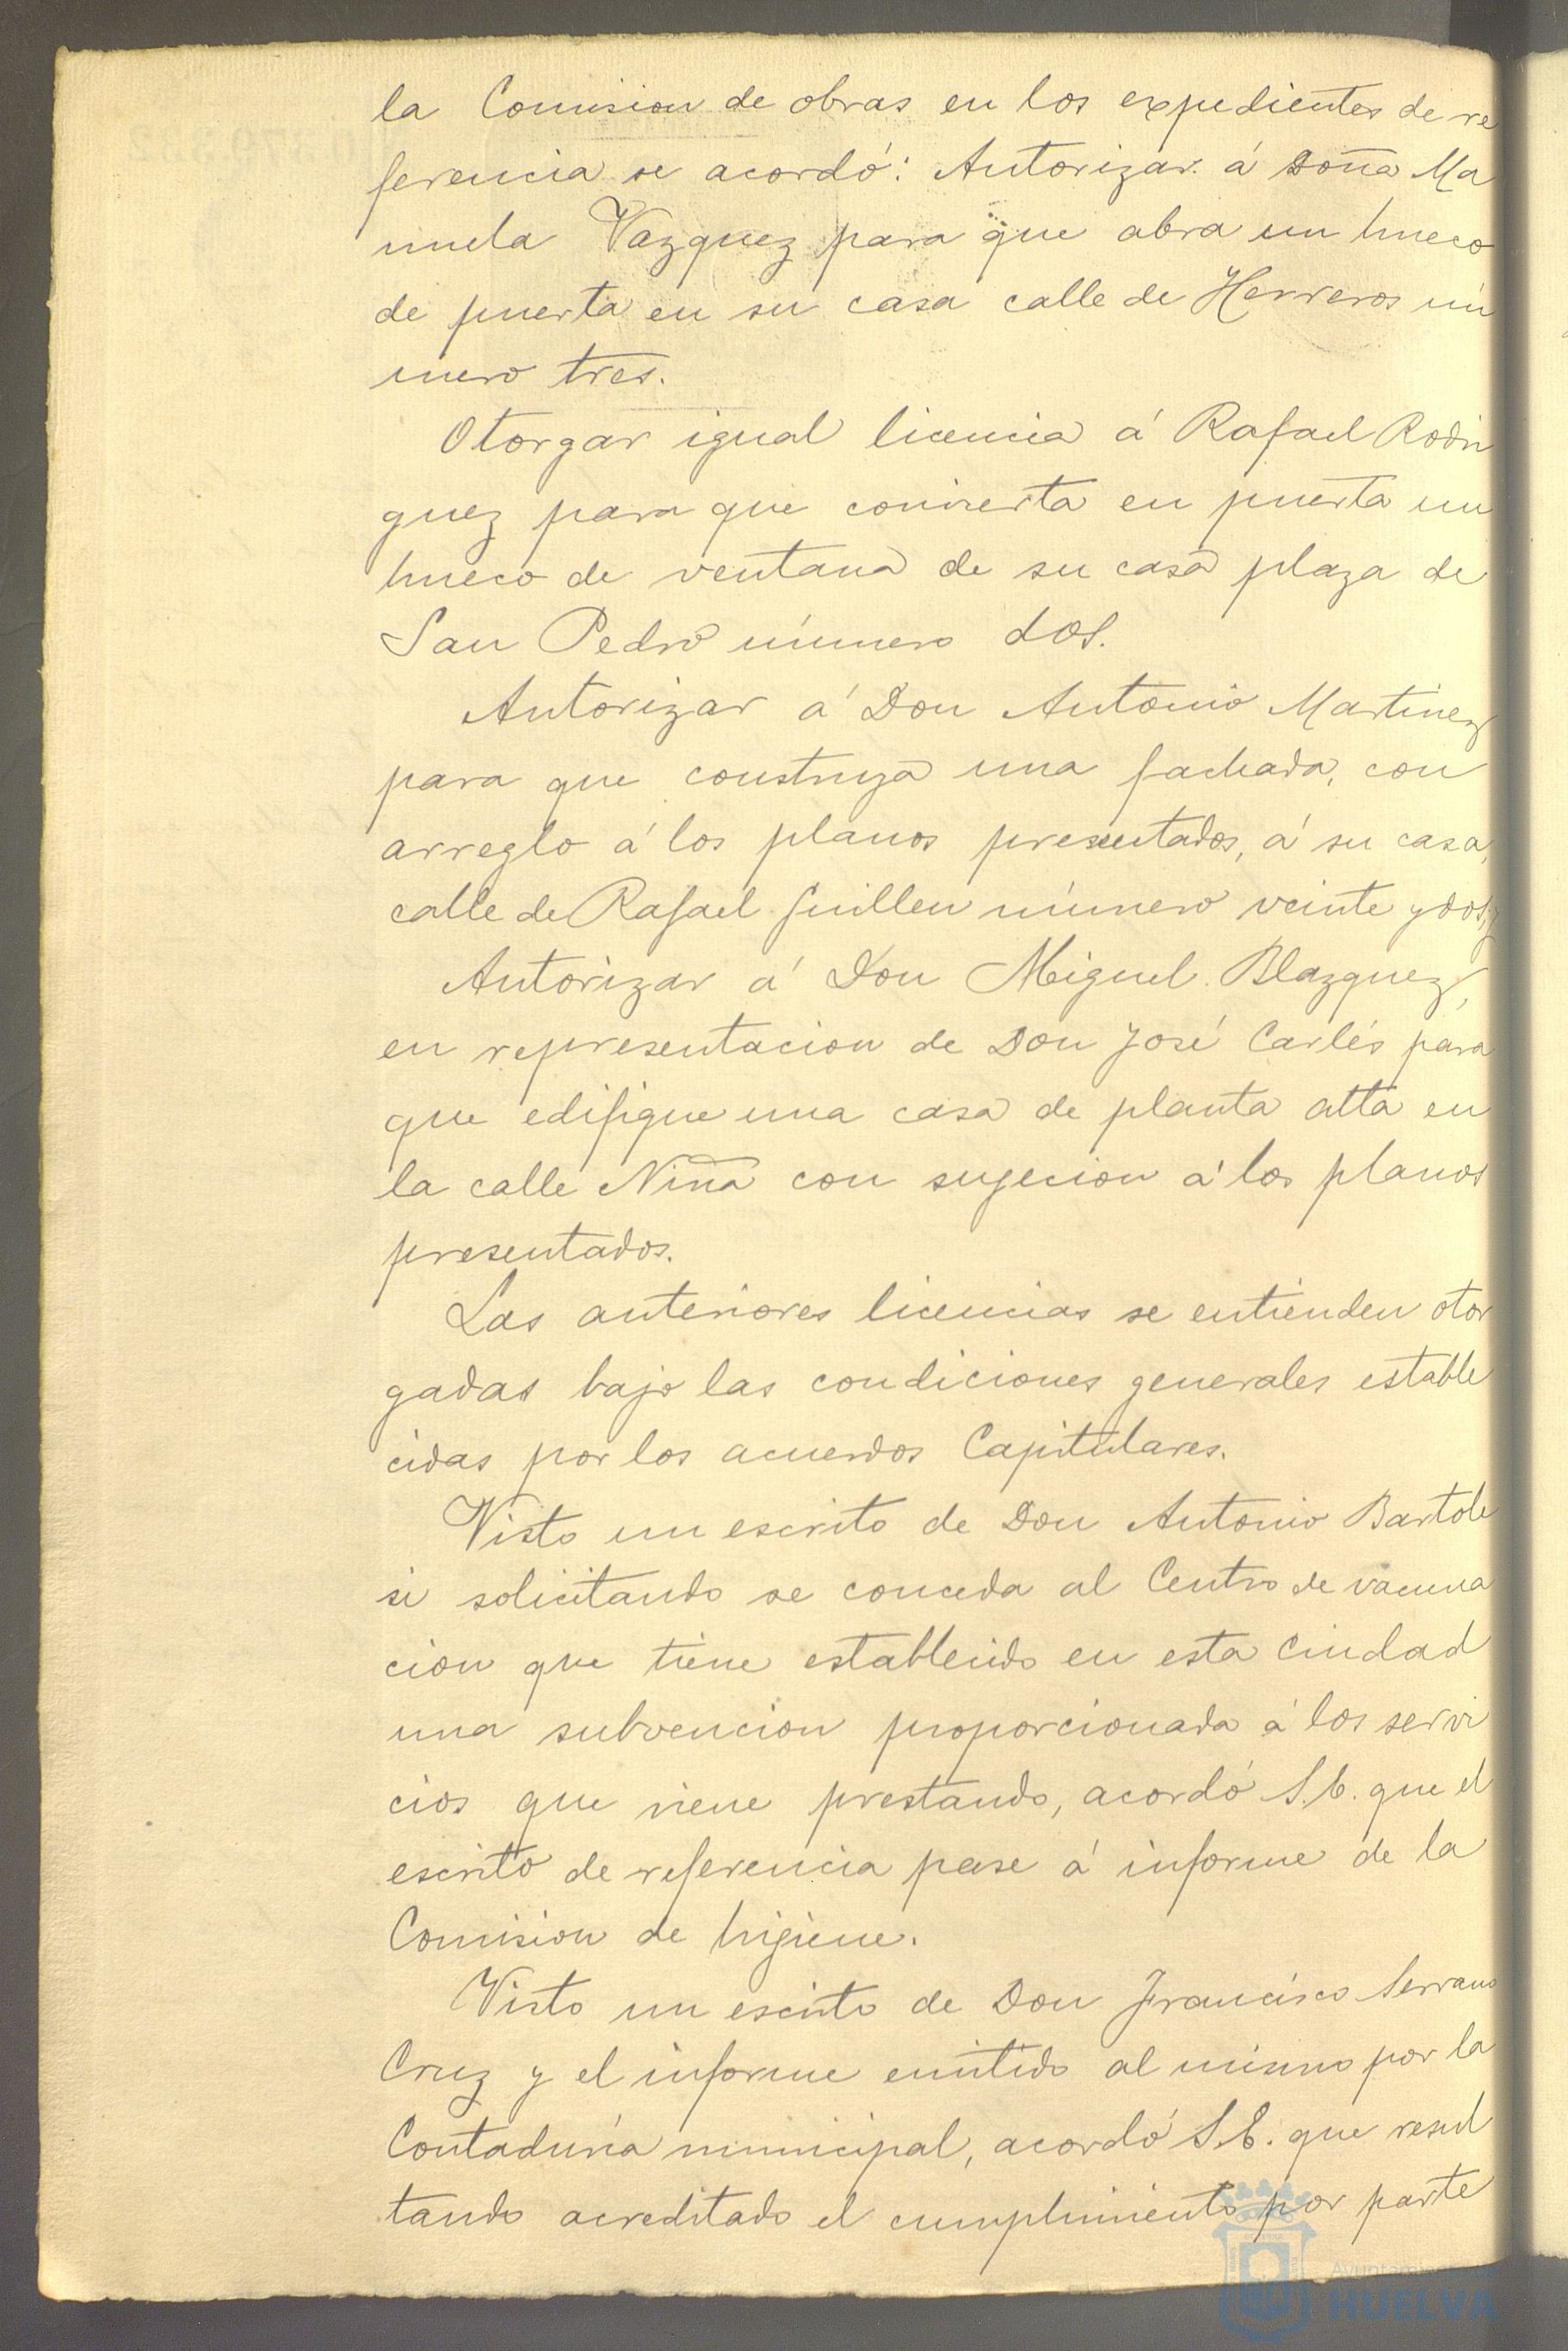 la Comision de obras en los expedientes de re
ferencia se acordó: Autorizar á Doña Ma
nuela Vazquez para que abra un hueco
de puerta en su casa calle de Herreros nú
mero tres.
Otorgar igual licencia á Rafael Rodri
guez para que convierta en puerta un
hueco de ventana de su casa plaza de
San Pedro número dos.
Autorizar á Don Antonio Martinez
para que construya una fachada, con
arreglo á los planos presentados, á su casa,
calle de Rafael Guillen número veinte y dos, y
Autorizar á Don Miguel Blazquez,
en representacion de Don José Carlés para
que edifique una casa de planta alta en
la calle Niña con sugecion á los planos
presentados.
Las anteriores licencias se entienden otor
gadas bajo las condiciones generales estable
cidas por los acuerdos Capitulares.
Visto un escrito de Don Antonio Bartole
si solicitando se conceda al Centro de vacuna
cion que tiene establecido en esta Ciudad
una subvencion proporcionada á los servi
cios que viene prestando, acordó S.E. que el
escrito de referencia pase á informe de la
Comision de higiene.
Visto un escrito de Don Francisco Serrano
Cruz y el informe emitido al mismo por la
Contaduría municipal, acordó S.E. que resul
tando acreditado el cumplimiento por parte
Ayuntamiento de
HUELVA